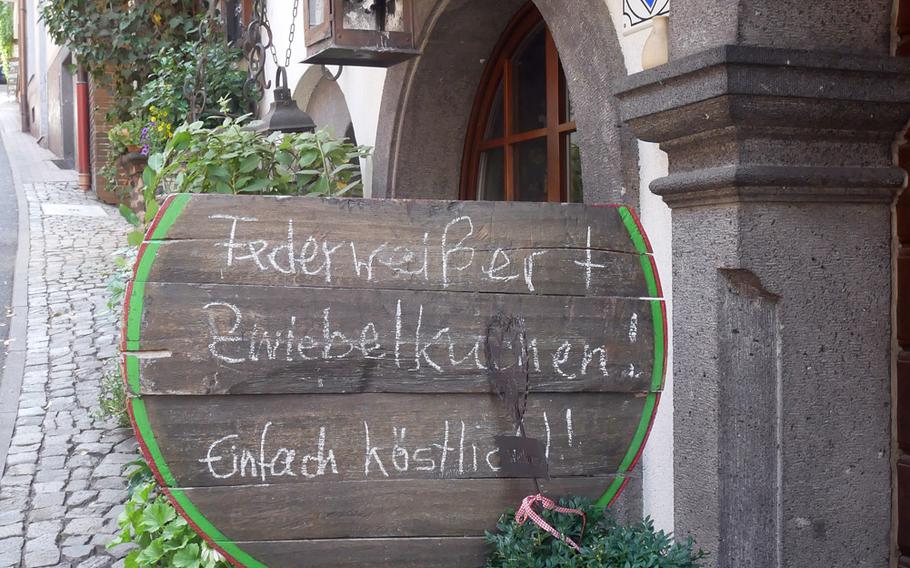 Federweißer +
Zwiebelkuchen!
Einfach köstlich!!